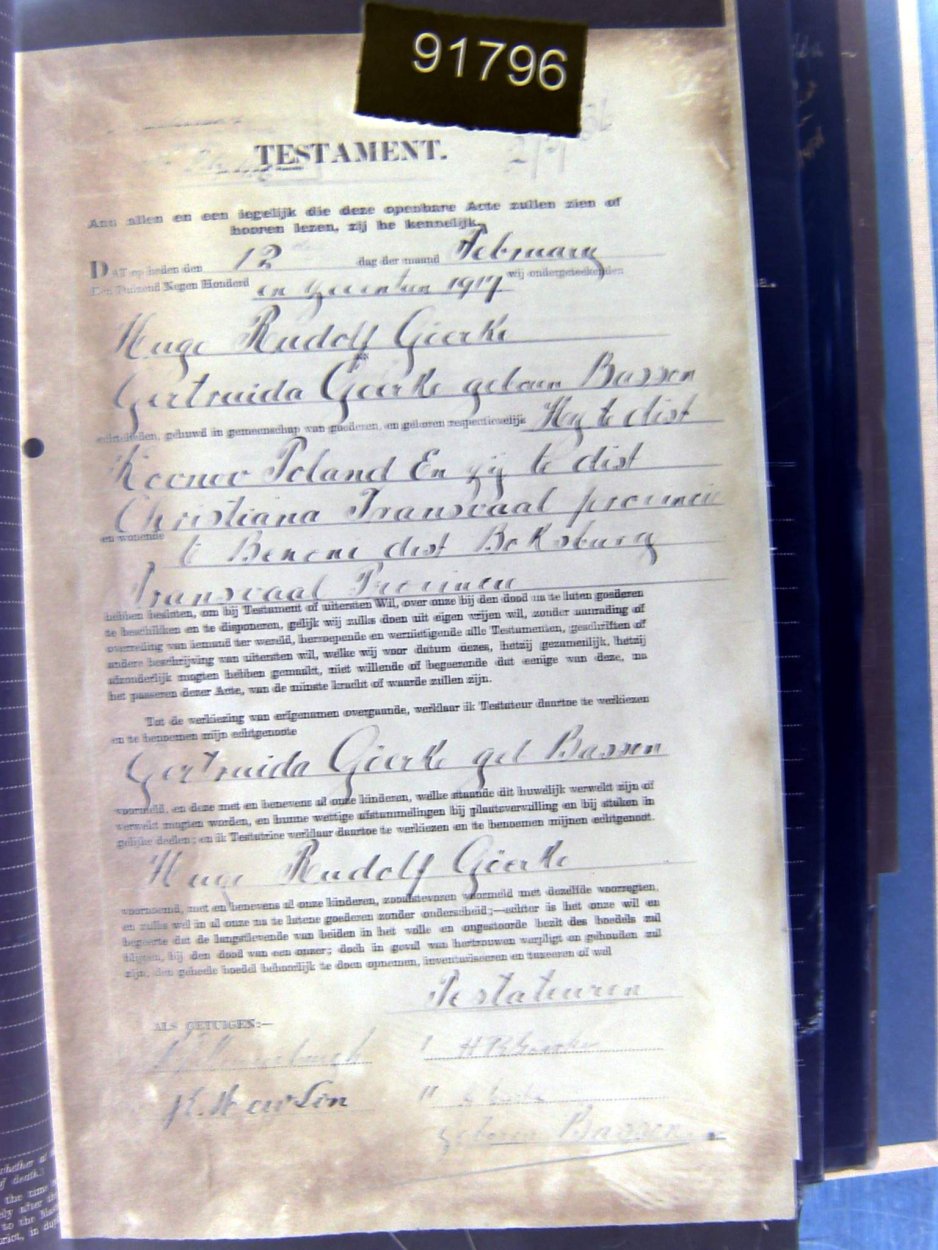 91796
TESTAMENT.
Aan allen en een iegelijk die deze openbare Acte zullen zien of
hooren lezen, zij he kennelijk,
DAT op heden den 12 dag der maand February
Een Duizend Negen Honderd en Zeventien 1917 wij ondergeteekenden
Hugo Rudolf Gierke
en
Gertruida Gierke geboren Bassen
echtelieden, gehuwd in gemeenschap van goederen, en geboren respectievelijk Hy te dist
Poland En zij te dist
Christiana Transvaal provincie
en wonende te Benoni dist Boksburg
Transvaal Provincie
hebben besloten, om bij Testament of uitersten Wil, over onze bij den dood na te laten goederen
te beschikken en te disponeren, gelijk wij zulks doen uit eigen vrijen wil, zonder aanrading of
overreding van iemand ter wereld, herroepende en vernietigende alle Testamenten, geschriften of
andere beschrijving van uitersten wil, welke wij voor datum dezes, hetzij gezamenlijk, hetzij
afzonderlijk mogten hebben gemaakt, niet willende of begeerende dat eenige van deze, na
het passeren dezer Acte, van de minste kracht of waarde zullen zijn.
Tot de verkiezing van erfgenamen overgaande, verklaar ik Testateur daartoe te verkiezen
en te benoemen mijn echtgenoote
Gertruida Gierke geb Bassen
voormeld, en deze met en benevens al onze kinderen, welke staande dit huwelijk verwekt zijn of
verwekt mogten worden, en hunne wettige afstammelingen bij plaatsvervulling en bij staken in
gelijke deelen; en ik Testatrice verklaar daartoe te verkiezen en te benoemen mijnen echtgenoot.
Hugo Rudolf Gierke
voornoemd, met en benevens al onze kinderen, zooalstevoren voormeld met dezelfde voorregten,
en zulks wel in al onze na te latene goederen zonder onderscheid;—echter is het onze wil en
begeerte dat de langstlevende van beiden in het volle en ongestoorde bezit des boedels zal
blijven, bij den dood van een onzer; doch in geval van hertrouwen verpligt en gehouden zal
zijn, den geheele boedel behoorlijk te doen opnemen, inventariseeren en taxeeren of wel
Testateuren
ALS GETUIGEN:—
H R Gierke
geboren Bassen